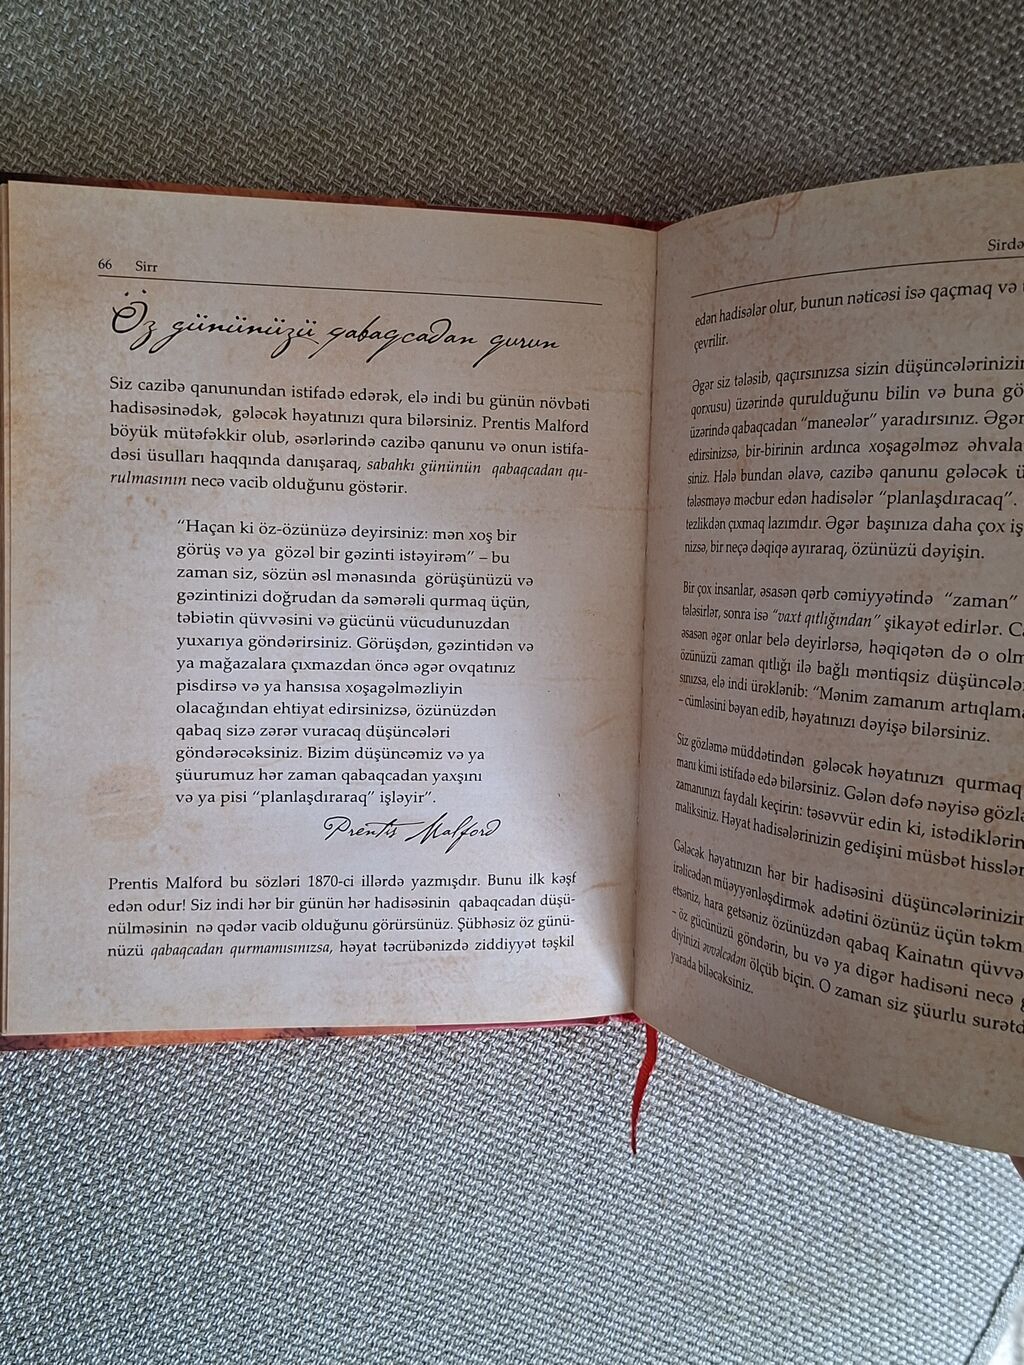 66 Sirr
Öz gününüzü qabaqcadan qurun
Siz cazibə qanunundan istifadə edərək, elə indi bu günün növbəti
hadisəsinədək, gələcək həyatınızı qura bilərsiniz. Prentis Malford
böyük mütəfəkkir olub, əsərlərində cazibə qanunu və onun istifa-
dəsi üsulları haqqında danışaraq, sabahkı gününün qabaqcadan qu-
rulmasının necə vacib olduğunu göstərir.
“Haçan ki öz-özünüzə deyirsiniz: mən xoş bir
görüş və ya gözəl bir gəzinti istəyirəm” – bu
zaman siz, sözün əsl mənasında görüşünüzü və
gəzintinizi doğrudan da səmərəli qurmaq üçün,
təbiətin qüvvəsini və gücünü vücudunuzdan
yuxarıya göndərirsiniz. Görüşdən, gəzintidən və
ya mağazalara çıxmazdan öncə əgər ovqatınız
pisdirsə və ya hansısa xoşagəlməzliyin
olacağından ehtiyat edirsinizsə, özünüzdən
qabaq sizə zərər vuracaq düşüncələri
göndərəcəksiniz. Bizim düşüncəmiz və ya
şüurumuz hər zaman qabaqcadan yaxşını
və ya pisi “planlaşdıraraq” işləyir”.
Prentis Malford
Prentis Malford bu sözləri 1870-ci illərdə yazmışdır. Bunu ilk kəşf
edən odur! Siz indi hər bir günün hər hadisəsinin qabaqcadan düşü-
nülməsinin nə qədər vacib olduğunu görürsünüz. Şübhəsiz öz günü-
nüzü qabaqcadan qurmamısınızsa, həyat təcrübənizdə ziddiyyət təşkil
edən hadisələr olur, bunun nəticəsi isə qaçmaq və
çevrilir.
Əgər siz tələsib, qaçırsınızsa sizin düşüncələrinizin
qorxusu) üzərində qurulduğunu bilin və buna
üzərində qabaqcadan “maneələr” yaradırsınız.
edirsinizsə, bir-birinin ardınca xoşagəlməz
siniz. Hələ bundan əlavə, cazibə qanunu gələcək
tələsməyə məcbur edən hadisələr “planlaşdıracaq”.
tezlikdən çıxmaq lazımdır. Əgər başınıza daha çox
nizsə, bir neçə dəqiqə ayıraraq, özünüzü dəyişin.
Bir çox insanlar, əsasən qərb cəmiyyətində “zaman”
tələsirlər, sonra isə “vaxt qıtlığından” şikayət edirlər.
əsasən əgər onlar belə deyirlərsə, həqiqətən də o
özünüzü zaman qıtlığı ilə bağlı məntiqsiz
sınızsa, elə indi ürəklənib: “Mənim zamanım
– cümləsini bəyan edib, həyatınızı dəyişə bilərsiniz.
Siz gözləmə müddətindən gələcək həyatınızı qurmaq
manı kimi istifadə edə bilərsiniz. Gələn dəfə nəyisə
zamanınızı faydalı keçirin: təsəvvür edin ki,
maliksiniz. Həyat hadisələrinizin gedişini müsbət
Gələcək həyatınızın hər bir hadisəsini
irəlicədən müəyyənləşdirmək adətini özünüz üçün
etsəniz, hara getsəniz özünüzdən qabaq Kainatın
– öz gücünüzü göndərin, bu və ya digər hadisəni necə
diyinizi əvvəlcədən ölçüb biçin. O zaman siz şüurlu
yarada biləcəksiniz.